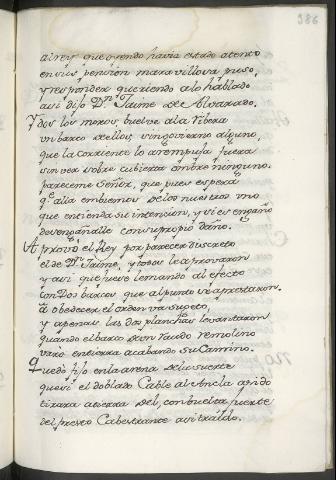 386
al rey que oyendo havia estado atento
en su suspension maravillosa puso,
y responder queriendo a lo hablado
asi dijo Dn. Jaime de Alvarado.
Y dos los moros, buelve a la ribera
un barco de ellos, sin govierno alguno,
que la corriente lo arempuja fuera
sin ver sobre cubierta ombre ninguno.
pareceme Señor, que pues espera
qe. alla embiemos de los nuestros uno
que entienda su intencion, y si es engaño
desengañalle con su propio daño.
Aprovò el Rey por parecer discreto
el de Dn. Jaime, y todos le aprovaron
y asi que fuese lemando al efecto
con Dos barcos que al punto se aprestaron.
à obedecer el orden va sugeto,
y apenas las dos planchas levantaron
quando el barco de un raudo remolino
varò en tierra acabando su Camino.
Quedò fijo en la arena de la suerte
que si el doblado Cable al Ancla asido
tirara a tierra del, con buelta fuerte
del presto Cabestrante